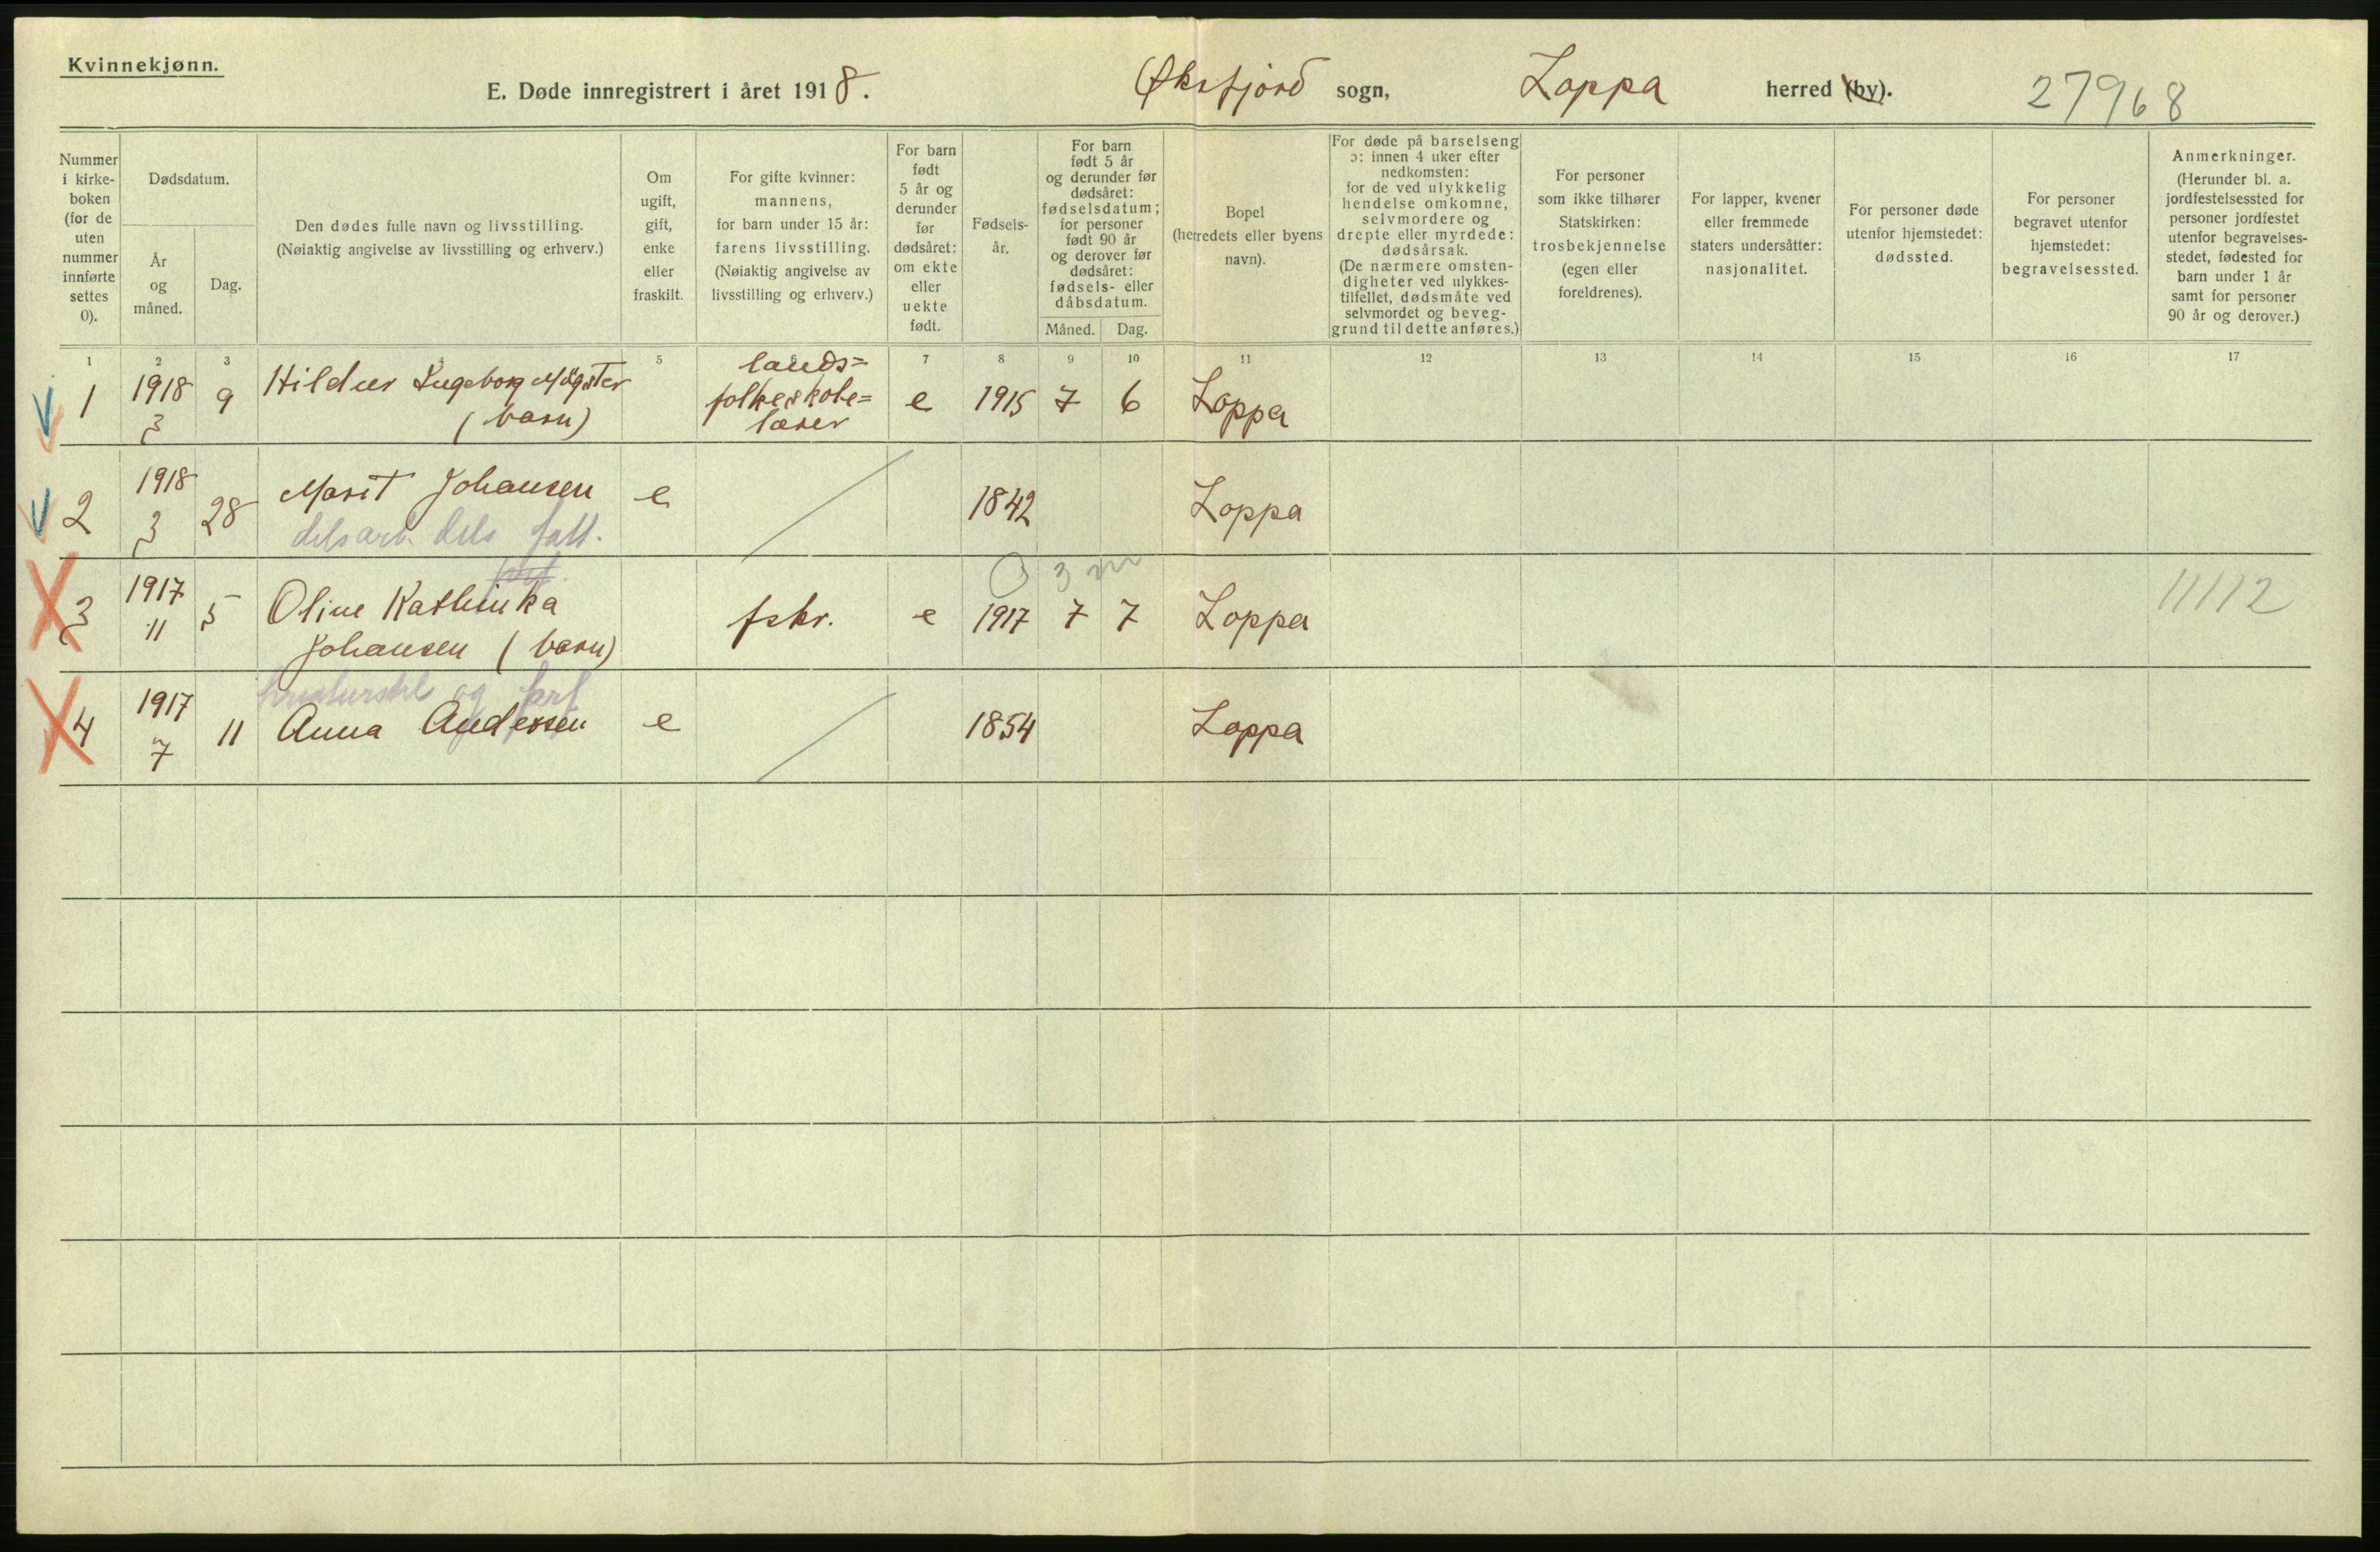 Kvinnekjønn.
E. Døde innregistrert i året 1918.
Øksfjord sogn, Loppa herred (by).
27968
Nummer
i kirke-
boken
(for de
uten
nummer
innførte
settes
0).
Dødsdatum.
År
og
måned.
Dag.
Den dødes fulle navn og livsstilling.
(Nøiaktig angivelse av livsstilling og erhverv.)
Om
ugift,
gift,
enke
eller
fraskilt.
For gifte kvinner:
mannens,
for barn under 15 år:
farens livsstilling.
(Nøiaktig angivelse av
livsstilling og erhverv.)
For barn
født
5 år og
derunder
før
dødsåret:
om ekte
eller
uekte
født.
Fødsels-
år.
For barn
født 5 år
og derunder før
dødsåret:
fødselsdatum;
for personer
født 90 år
og derover før
dødsåret:
fødsels- eller
dåbsdatum.
Måned. Dag.
Bopel
(herredets eller byens
navn).
For døde på barselseng
ɔ: innen 4 uker efter
nedkomsten:
for de ved ulykkelig
hendelse omkomne,
selvmordere og
drepte eller myrdede:
dødsårsak.
(De nærmere omsten-
digheter ved ulykkes-
tilfellet, dødsmåte ved
selvmordet og beveg-
grund til dette anføres.)
For personer
som ikke tilhører
Statskirken:
trosbekjennelse
(egen eller
foreldrenes).
For lapper, kvener
eller fremmede
staters undersåtter:
nasjonalitet.
For personer døde
utenfor hjemstedet:
dødssted.
For personer
begravet utenfor
hjemstedet:
begravelsessted.
Anmerkninger.
(Herunder bl. a.
jordfestelsessted for
personer jordfestet
utenfor begravelses-
stedet, fødested for
barn under 1 år
samt for personer
90 år og derover.)
1 2 3 4 5 7 8 9 10 11 12 13 14 15 16 17
1 1918 3 9 Hildur Ingeborg Møgster
(barn)
lands=
folkeskole=
lærer
e 1915 7 6 Loppa
2 1918 3 28 Marit Johansen e 1842 Loppa
dels arb. dels fatt.
0 3 m
3 1917 11 5 Oline Kathinka
Johansen (barn)
fskr. e 1917 7 7 Loppa 11112
og forf
4 1917 7 11 Anna Anderssen e 1854 Loppa